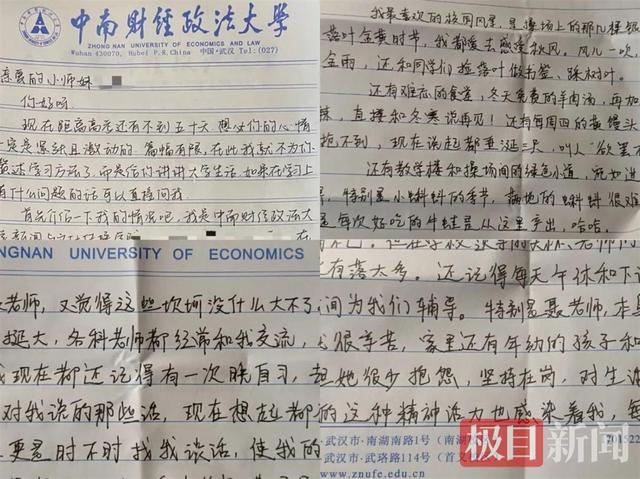 中南财经政法大学
ZHONGNAN UNIVERSITY OF ECONOMICS AND LAW
Wuhan 430070, Hubei P.R.China 中国·武汉 Tel:(027)
亲爱的小师妹
你好啊
现在距离高考还有不到五十天,想必你的心情
定是紧张且激动的.篇幅有限,在此我就不为你
还学习方法了,而是给你讲讲大学生活.如果在学习上
有什么问题的话可以直接问我.
首先介绍一下我的情况吧,我是中南财经政法大
在
我最喜欢的校园风景,是操场上的那几棵银
落叶金黄的时节,我都爱去感受秋风.风儿一吹,
金雨,还和同学们捡落叶做书签、踩树叶.
还有难忘的食堂,冬天免费的羊肉汤,再加
辣,直接和冬寒说再见!还有每周四的黄馒头
抢不到,现在说起都垂涎三尺,叫人欲罢不
还有教学楼和操场间的绿色小道,宛如进
特别是小蝌蚪的季节,满地的蝌蚪很难
是每次好吃的牛蛙是从这里产出,哈哈.
NGNAN UNIVERSITY OF ECONOMICS
老师,又觉得这些坎坷没什么大不了
挺大,各科老师都经常和我交流,
我现在都还记得有一次晚自习,
对我说的那些话.现在想起都
更是时不时找我谈话,使我的
有落太多.还记得每天午休和下
间为我们辅导.特别是聂老师,本身
很辛苦,家里还有年幼的孩子和
但她很少抱怨,坚持在岗,对生活
的这种精神活力也感染着我,每
武汉市·南湖南路1号(南湖
武汉市·武珞路114号(首义
www.znufe.edu.cn
201522
极目新闻